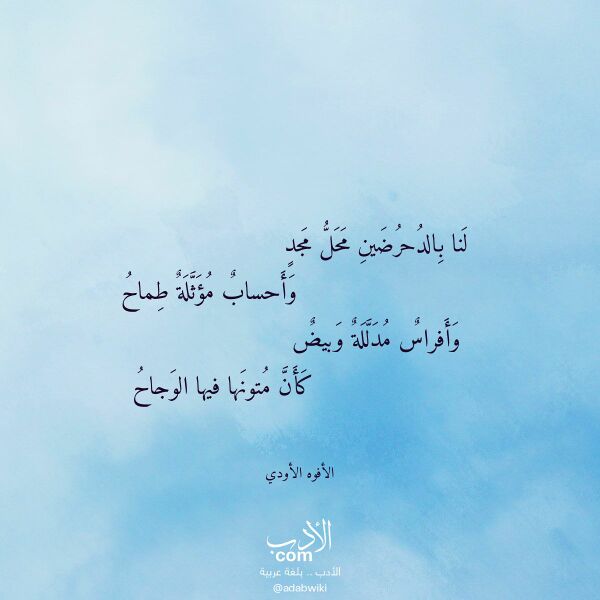 لَنا بِالدُحرُضَينِ مَحَلُّ مَجدٍ
وَأَحسابٌ مُؤَثَّلَةٌ طِماحُ
وَأَفراسٌ مُدَلَّلَةٌ وَبيضٌ
كَأَنَّ مُتونَها فيها الوَجاحُ
الأفوه الأودي
الأدب
com
الأدب .. بلغة عربية
@adabwiki